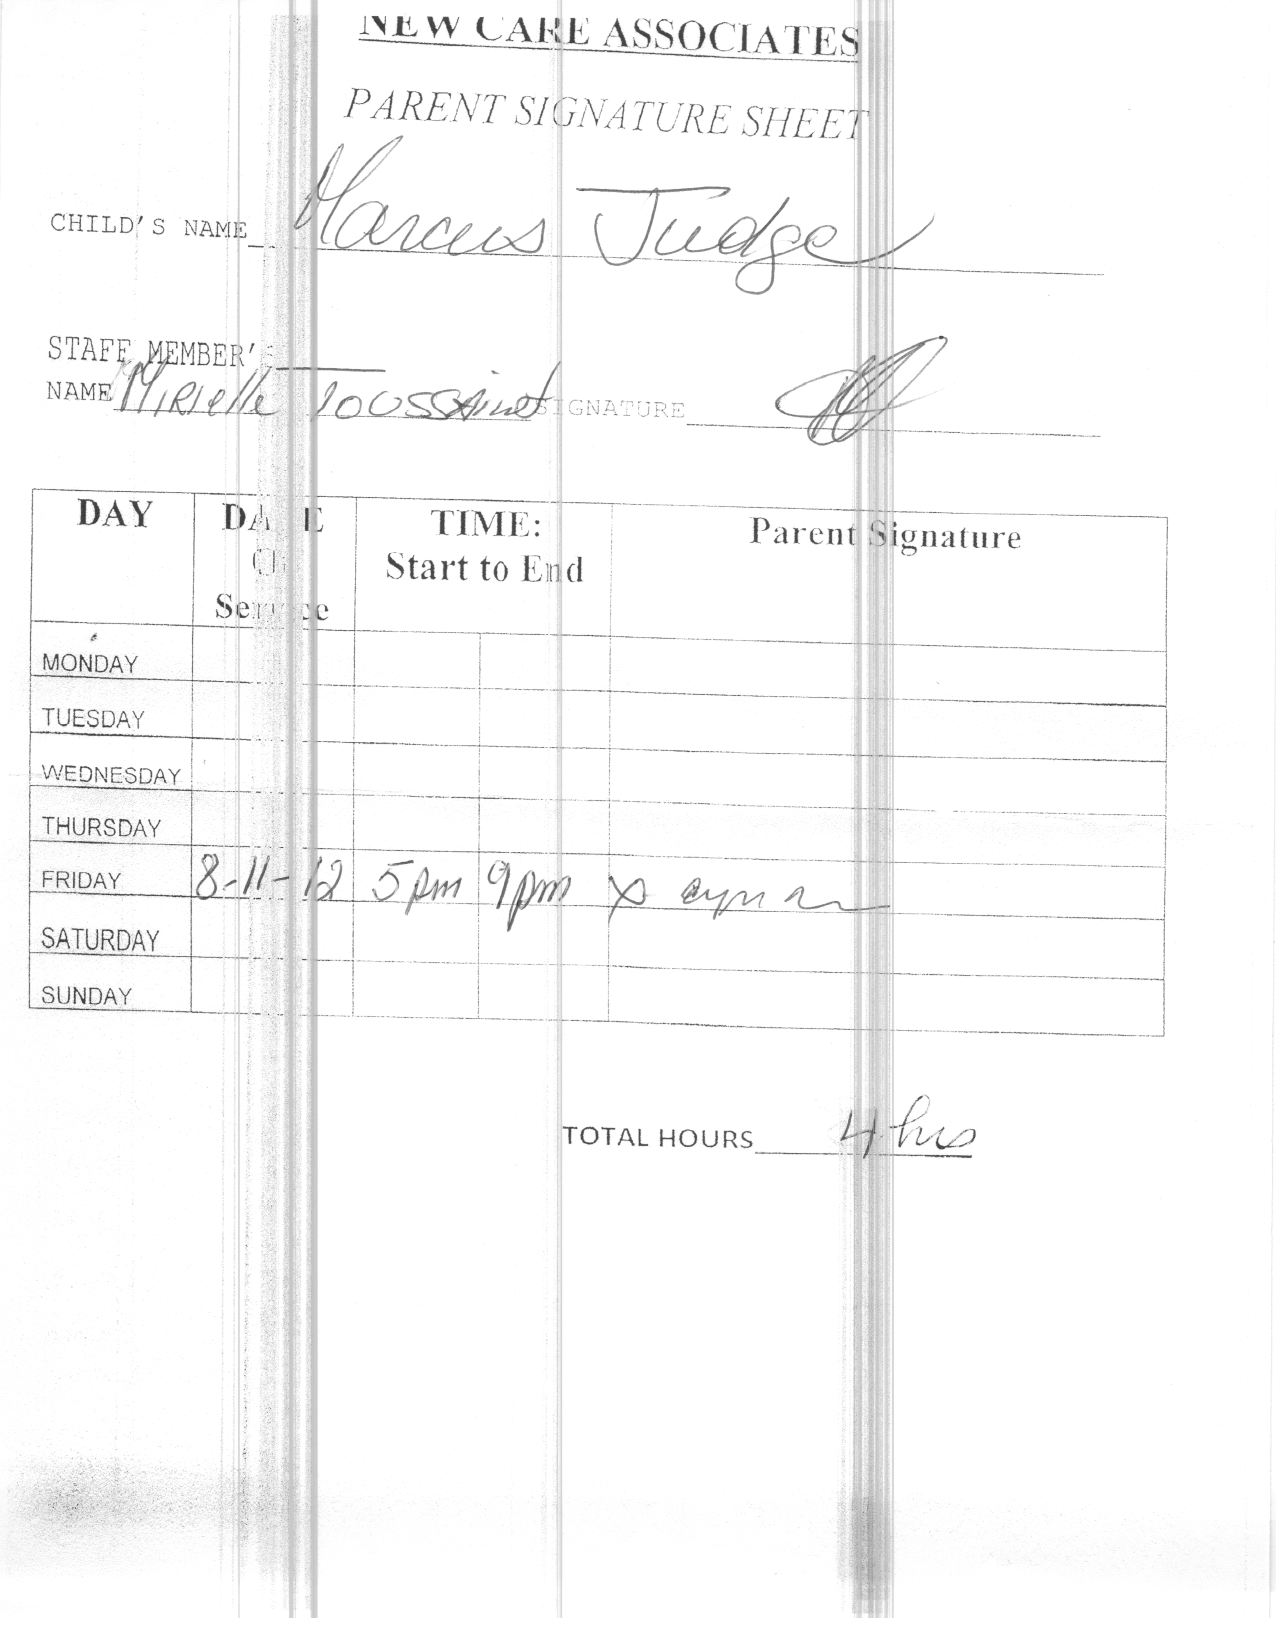 NEW CARE ASSOCIATES
PARENT SIGNATURE SHEET
CHILD'S NAME Marcus Judge
STAFF MEMBER'
NAME Mirielle Toussaint SIGNATURE
DAY DATE TIME: Parent Signature
Of Start to End
Service
MONDAY
TUESDAY
WEDNESDAY
THURSDAY
FRIDAY 8-11-12 5pm 9pm x
SATURDAY
SUNDAY
TOTAL HOURS 4 hrs